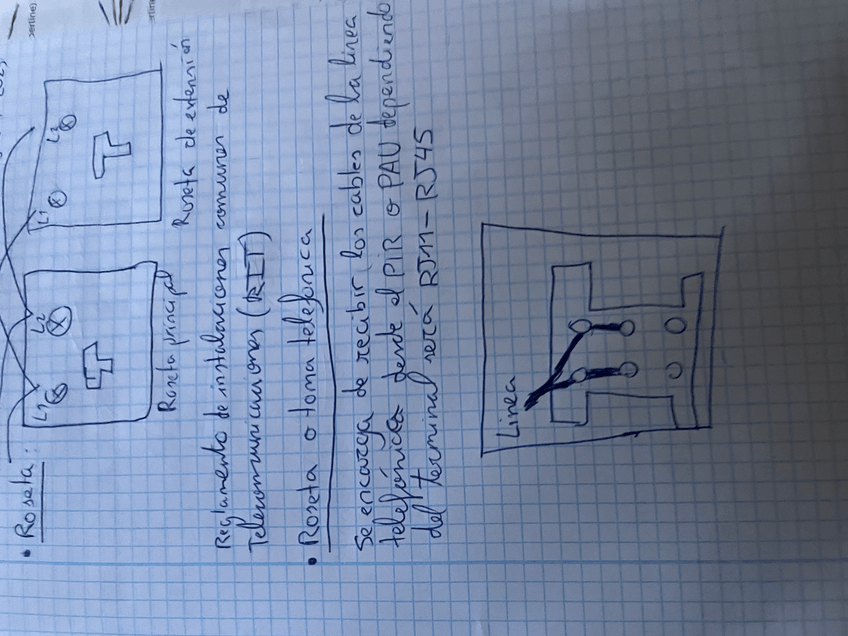 • Roseta:
L1 L2 L1 L2
Roseta principal Roseta de extensión
Reglamento de instalaciones comunes de
Telecomunicaciones (RIT)
• Roseta o toma telefonica
Se encarga de recibir los cables de la linea
telefónica desde el PIR o PAU dependiendo
del terminal será RJ11 - RJ45
Linea